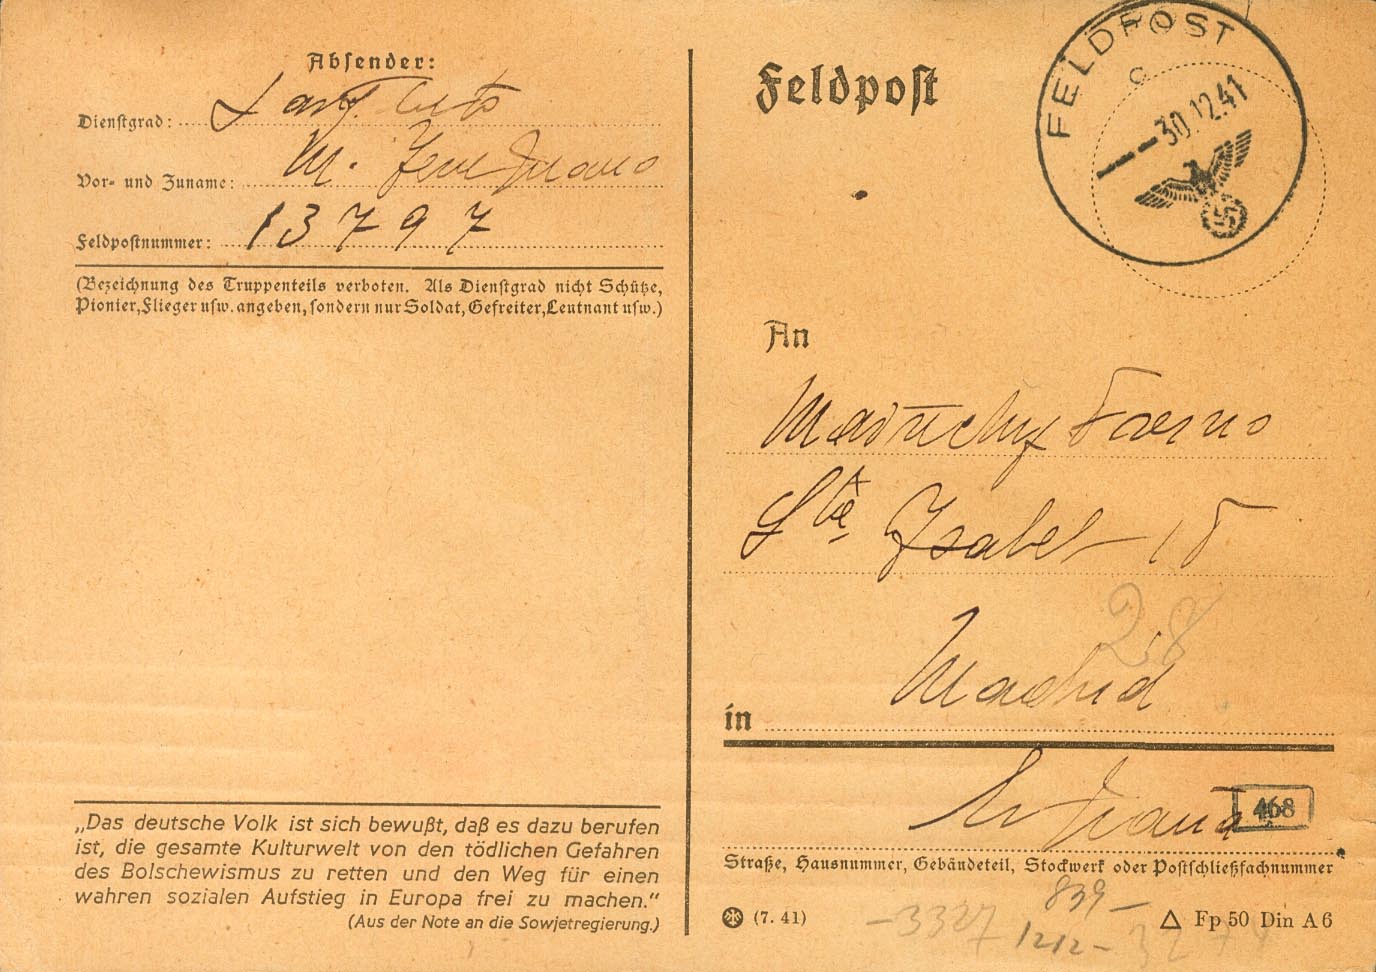 Absender:
Dienstgrad:
Vor- und Zuname: M.
Feldpostnummer: 13797
(Bezeichnung des Truppenteils verboten. Als Dienstgrad nicht Schütze,
Pionier, Flieger usw. angeben, sondern nur Soldat, Gefreiter, Leutnant usw.)
„Das deutsche Volk ist sich bewußt, daß es dazu berufen
ist, die gesamte Kulturwelt von den tödlichen Gefahren
des Bolschewismus zu retten und den Weg für einen
wahren sozialen Aufstieg in Europa frei zu machen.“
(Aus der Note an die Sowjetregierung.)
Feldpost
FELDPOST
c
30.12.41
An
Sta Isabel 15
28
in Madrid
468
Straße, Hausnummer, Gebäudeteil, Stockwerk oder Postschließfachnummer
839-
(7. 41)
-3327
1212-
△ Fp 50 Din A 6